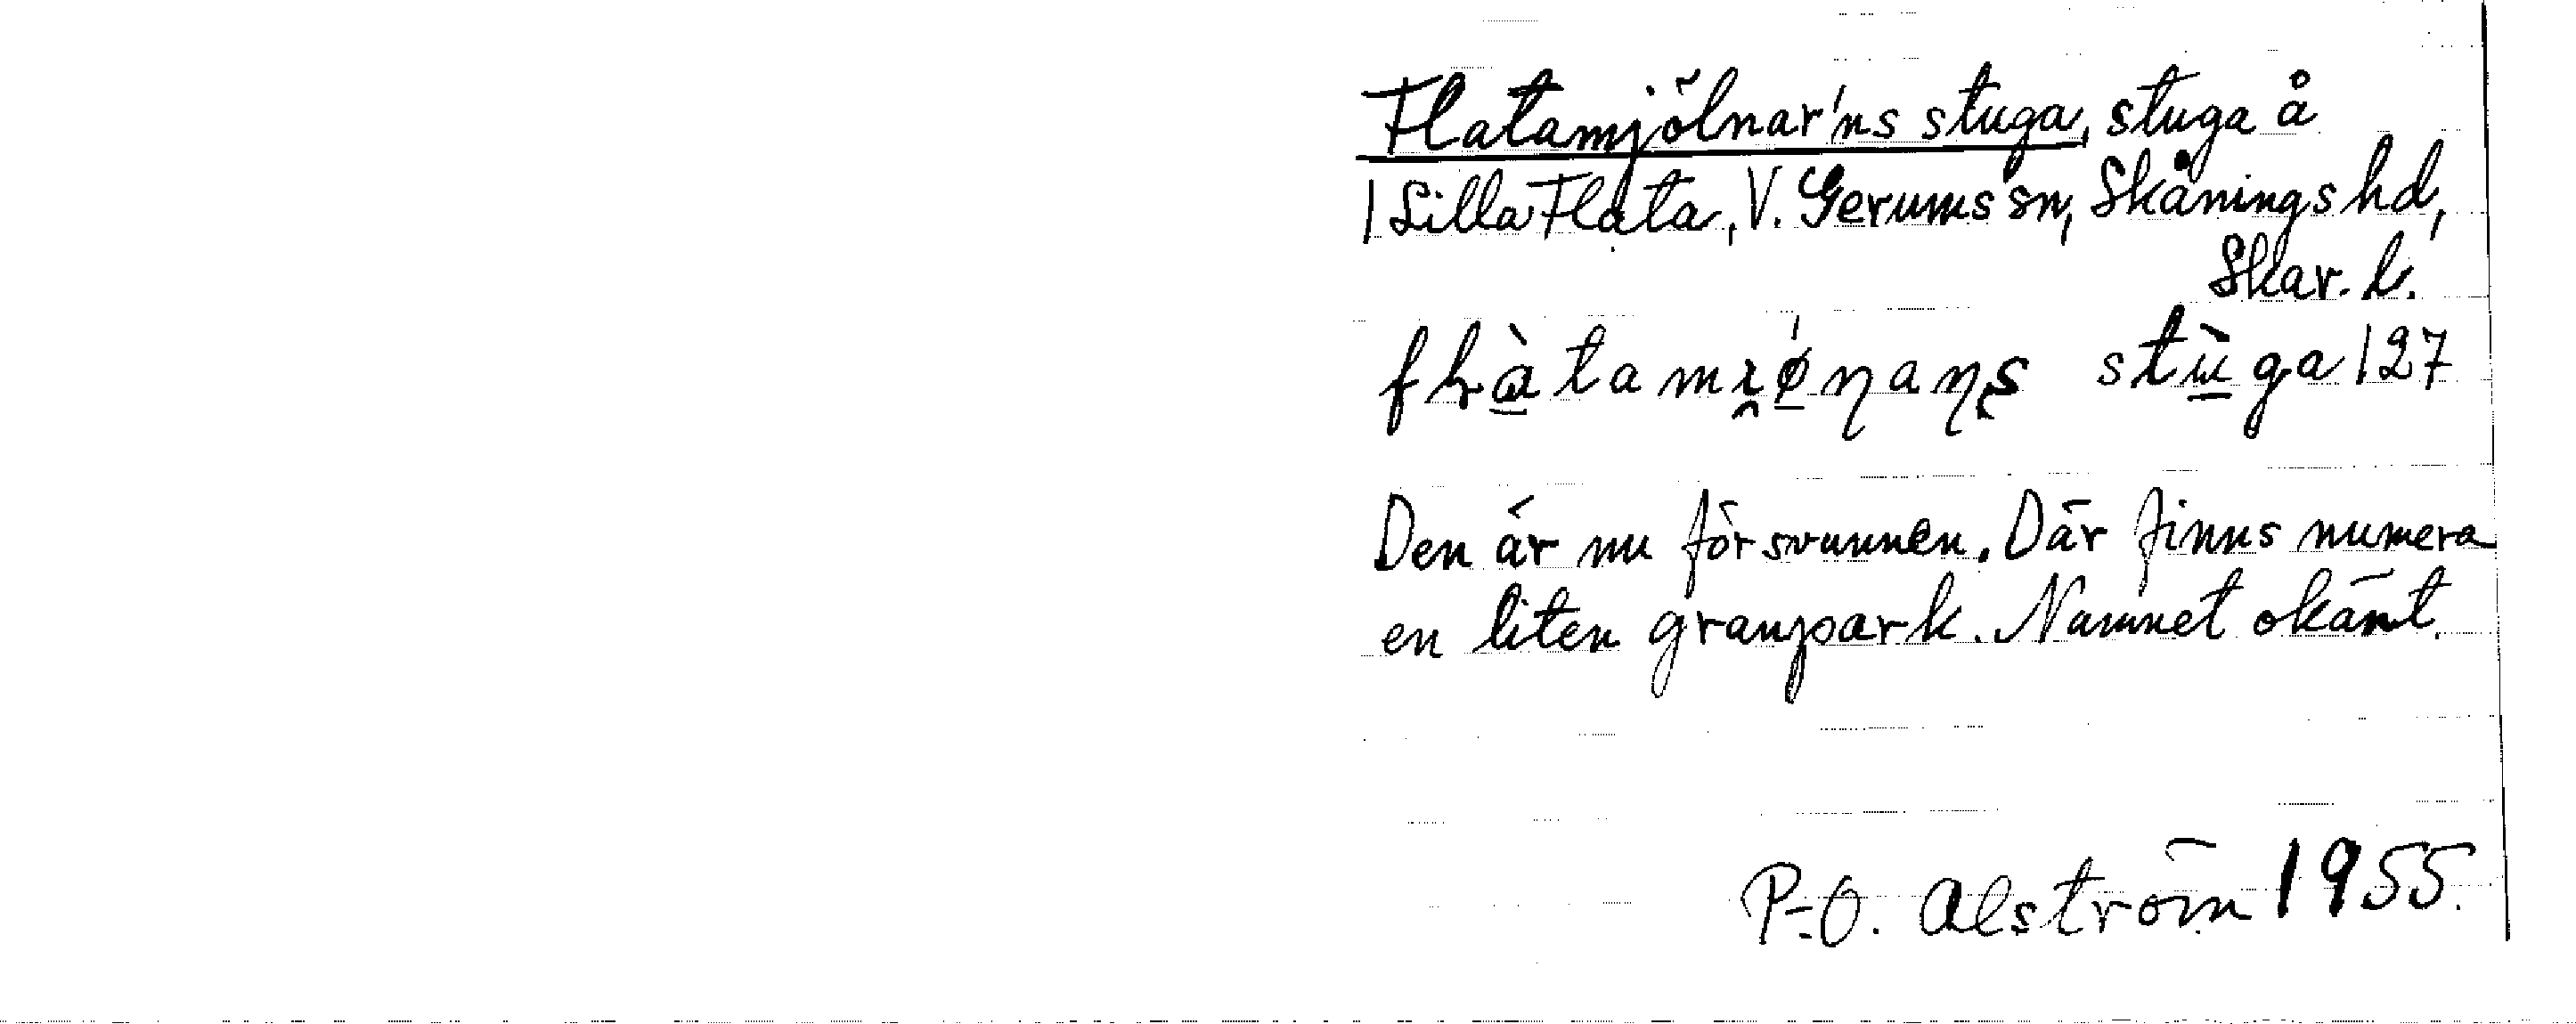 Flatamjölnar'ns stuga, stuga å
1 Lilla Flata, V. Gerums sn, Skånings hd,
Skar. l.
stu̠̇ga 127
Den är nu försvunnen. Där finns numera
en liten granpark. Namnet okänt.
P-O. Alström 1955.